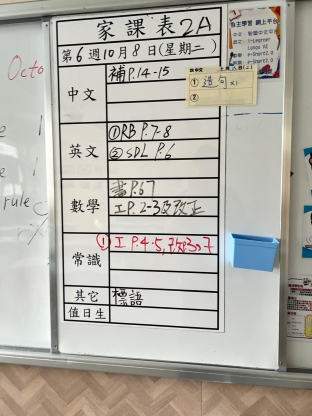 家課表2A
第6週10月8日(星期二)
中文
補P.14-15
① 造句 x1
②
英文
①RB P.7-8
②SDL P.6
數學
書P.67
工P.2-3及改正
常識
①工P.4-5,
其它
標語
值日生
Octo
rule
自主學習 網上平台